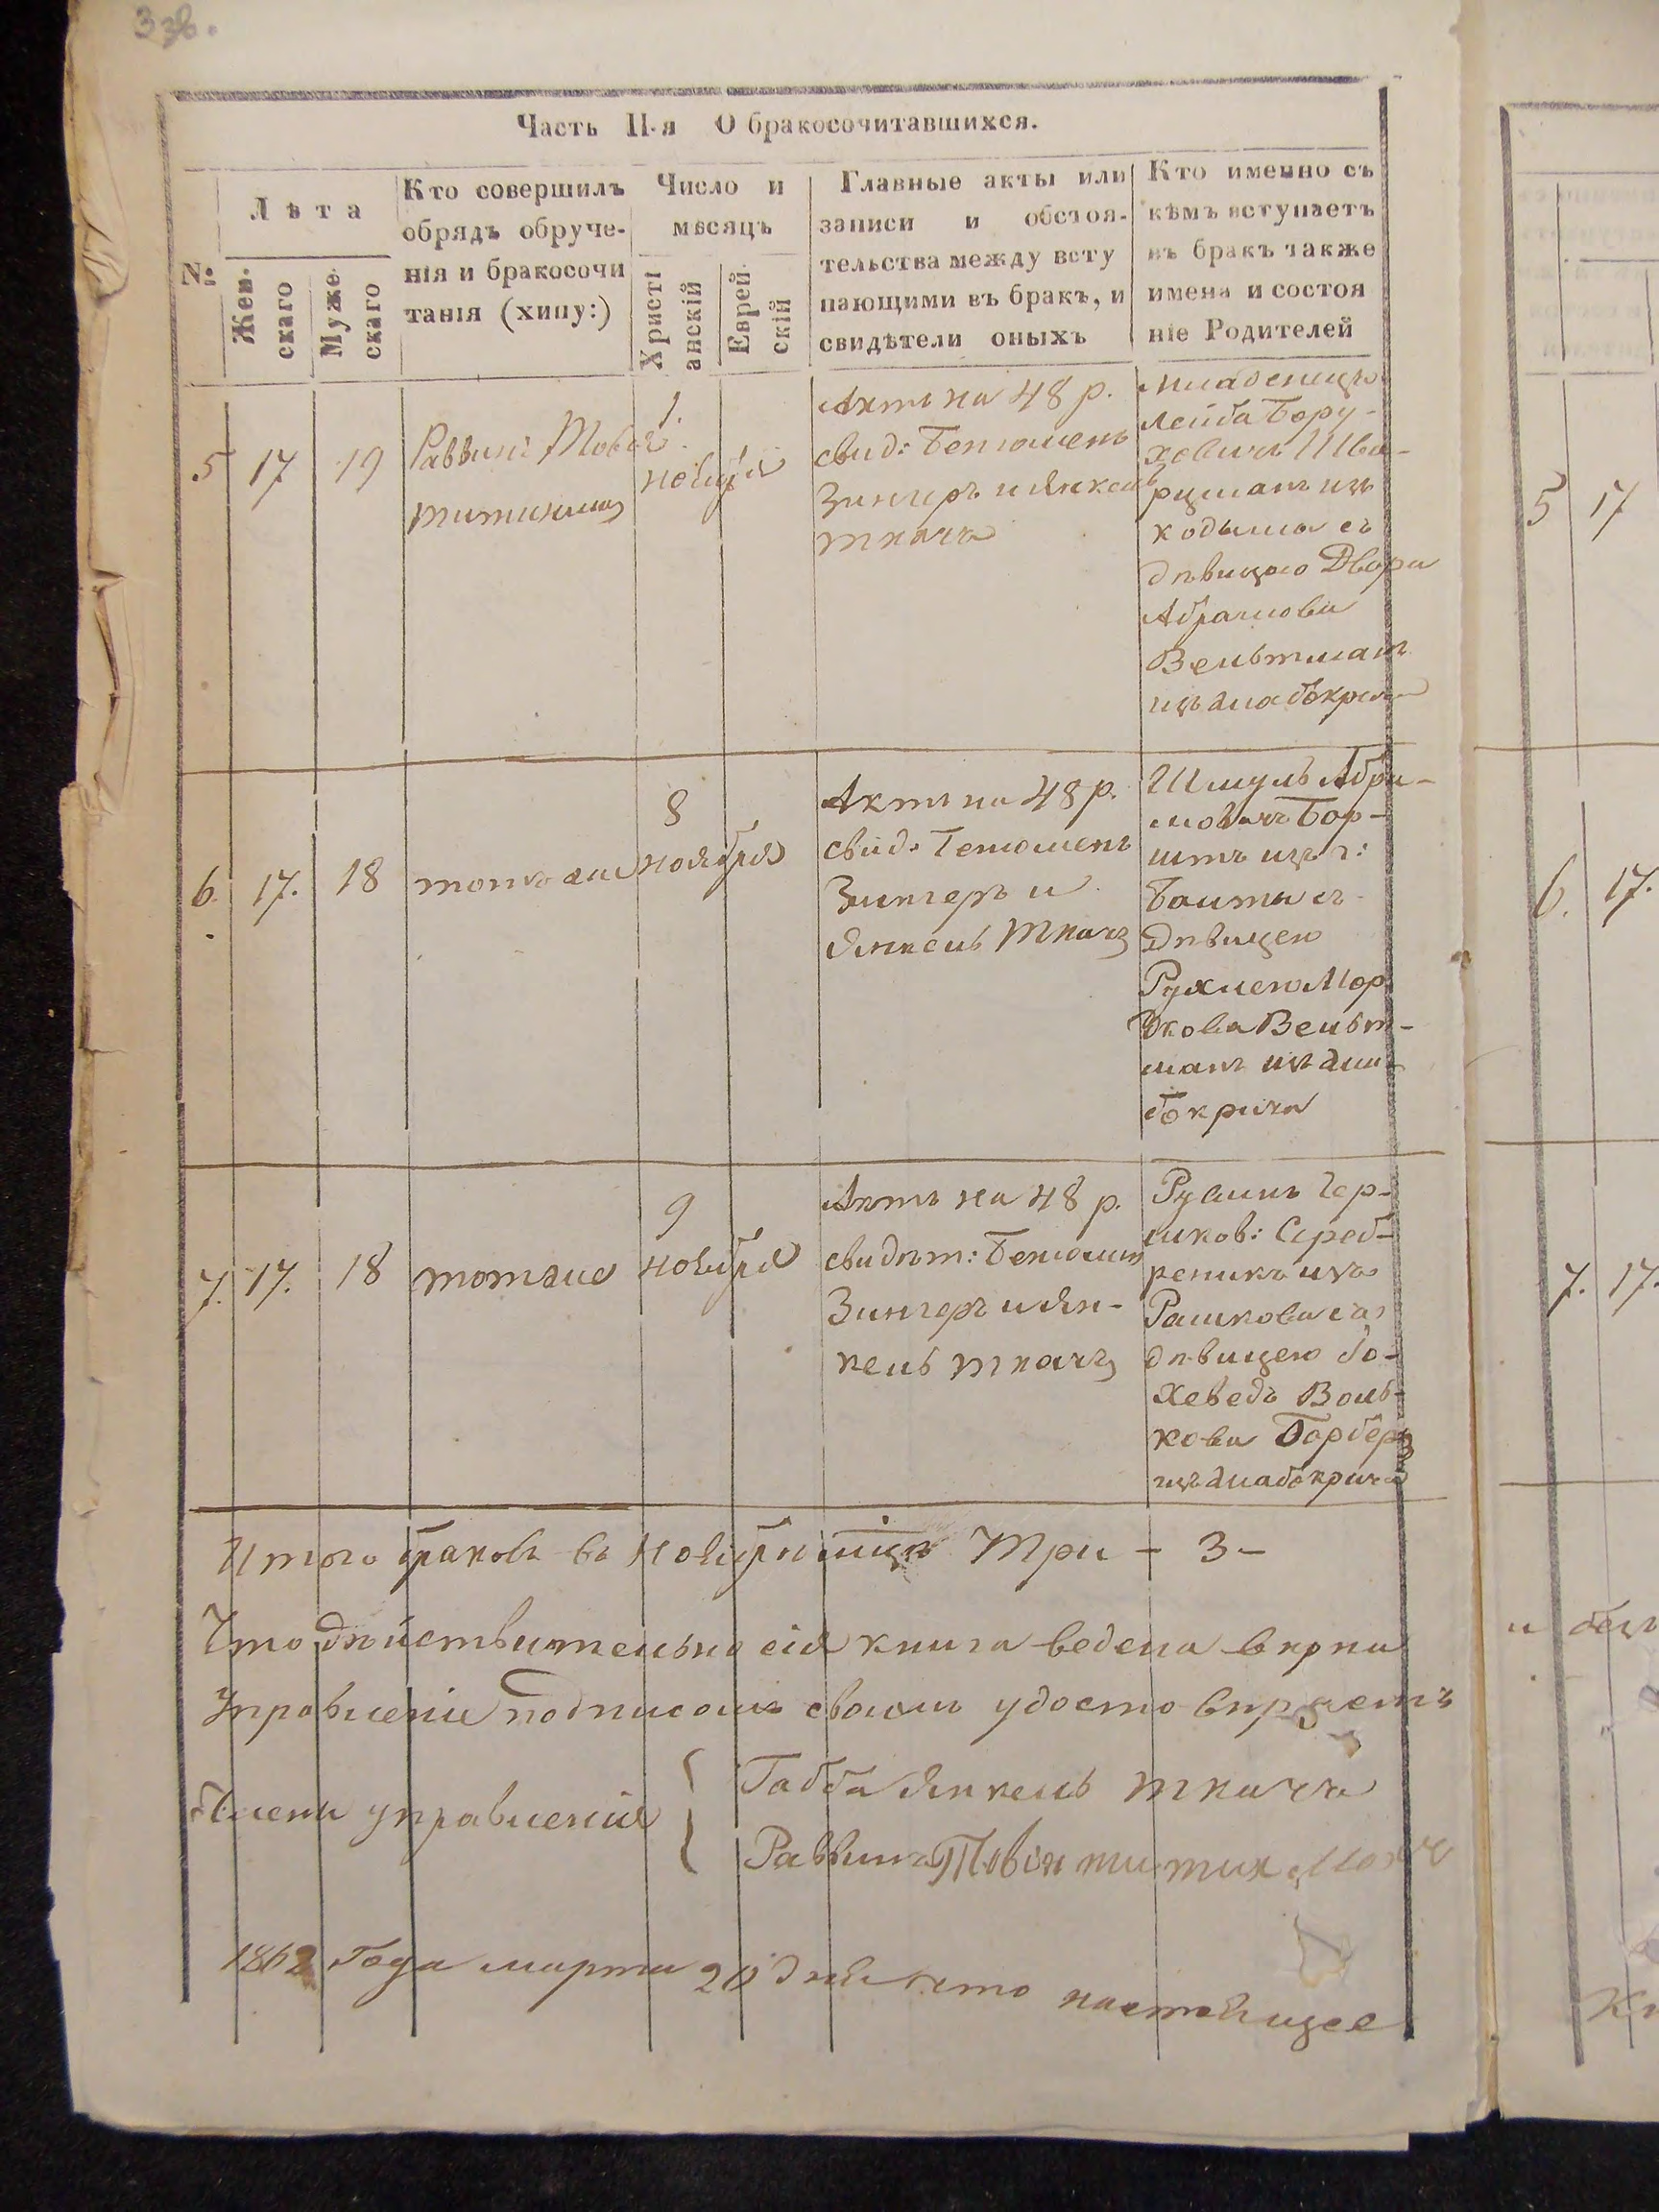 Часть II-я О бракосочитавшихся.
№:
Лѣта
Жен-
скаго
Муже-
скаго
Кто совершилъ
обрядъ обруче-
нія и бракосочи
танія (хипу:)
Число и
мѣсяцъ
Христі
анскій
Еврей-
скій
Главные акты или
записи и обстоя-
тельства между всту
пающими въ бракъ, и
свидѣтели оныхъ
Кто именно съ
кѣмъ вступаетъ
въ бракъ также
имена и состоя
ніе Родителей
5
17
19
Раввинъ
1.
ноября
Актъ на 48 р.
свид: Бенюменъ
Зингеръ и Янкель
ткачъ
Младенецъ
Лейба Беру-
ховичъ Шва-
рцманъ изъ
кодыма съ
дѣвицою Двора
Абрамова
Вельтманъ
изъ
6.
17.
18
тотже
8
ноября
Актъ на 48 р.
свид: Бенюменъ
Зингеръ и
Янкель Ткачъ
Шмуль Абра-
мовичъ Бор-
изъ г:
Балты съ
дѣвицею
Рухлею Мор
дкова Вельт-
манъ изъ
7.
17.
18
тотже
9
ноября
Актъ на 48 р.
свидѣт: Бенюмин
Зингеръ и Ян-
кель ткачъ
Рувинъ Гер-
шков: Сереб-
реникъ изъ
Рашкова съ
дѣвицею
хеведъ Воль-
кова
изъ
Итого браковъ въ Ноябрѣ мцѣ Три - 3 -
Что дѣйствительно сія книга ведена вѣрна
Управленіе подписомъ своимъ удостовѣряетъ
Члены управленія
Габба Янкель ткачъ
Раввинъ Товія
1862 Года марта 20 дня что настоящее
5 17
6. 17.
7. 17.